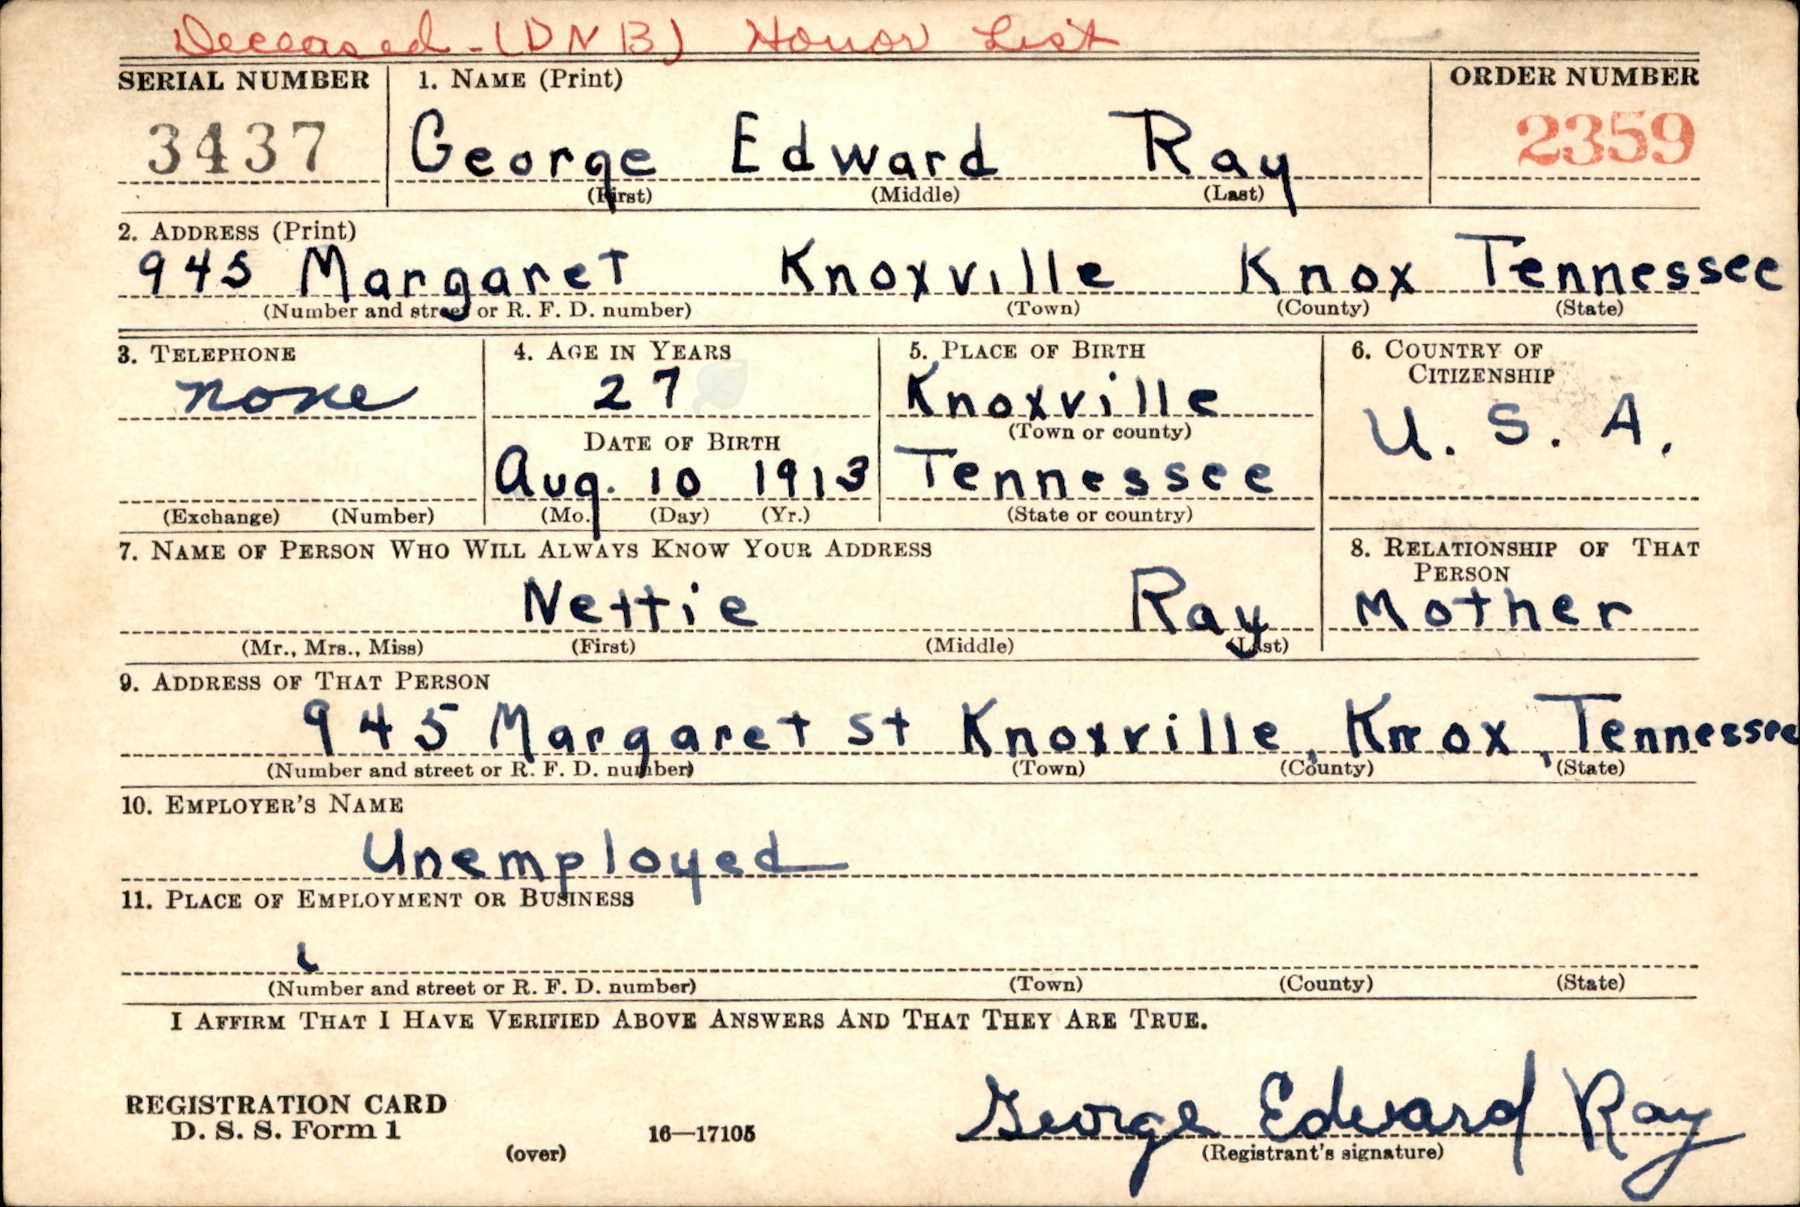 Deceased - (DNB) Honor List
SERIAL NUMBER 1. NAME (Print) ORDER NUMBER
3437 George Edward Ray 2359
(First) (Middle) (Last)
2. ADDRESS (Print)
945 Margaret Knoxville Knox Tennessee
(Number and street or R. F. D. number) (Town) (County) (State)
3. TELEPHONE 4. AGE IN YEARS 5. PLACE OF BIRTH 6. COUNTRY OF
CITIZENSHIP
none 27 Knoxville U. S. A.
DATE OF BIRTH (Town or county)
Aug. 10 1913 Tennessee
(Exchange) (Number) (Mo.) (Day) (Yr.) (State or country)
7. NAME OF PERSON WHO WILL ALWAYS KNOW YOUR ADDRESS 8. RELATIONSHIP OF THAT
PERSON
Nettie Ray Mother
(Mr., Mrs., Miss) (First) (Middle) (Last)
9. ADDRESS OF THAT PERSON
945 Margaret St Knoxville, Knox, Tennessee
(Number and street or R. F. D. number) (Town) (County) (State)
10. EMPLOYER'S NAME
Unemployed
11. PLACE OF EMPLOYMENT OR BUSINESS
(Number and street or R. F. D. number) (Town) (County) (State)
I AFFIRM THAT I HAVE VERIFIED ABOVE ANSWERS AND THAT THEY ARE TRUE.
REGISTRATION CARD
D. S. S. Form 1 16—17105 George Edward Ray
(over) (Registrant's signature)